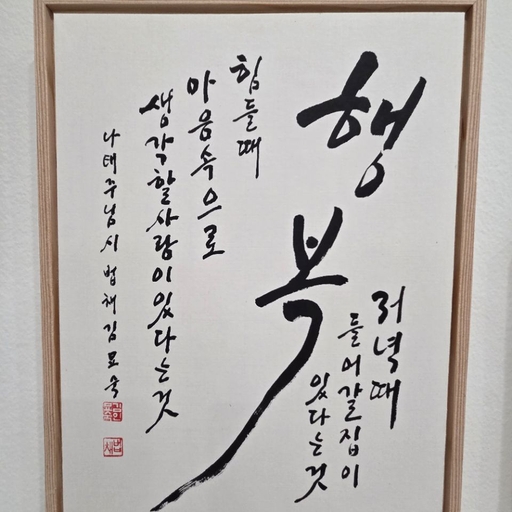 행복
저녁때
들어갈 집이
있다는 것
힘들때
마음속으로
생각할 사람이 있다는 것
나태주님 시 법채 김묘숙